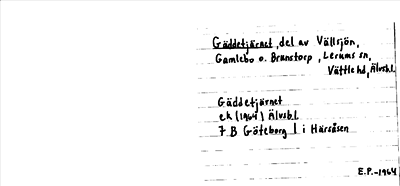 Gäddetjärnet, del av Vällsjön,
Gamlebo o. Brunstorp, Lerums sn,
Vättle hd, Älvsb.l.
Gäddetjärnet
ek (1964) Älvsb.l
7 B Göteborg 1 i Härsåsen
E.P.-1964